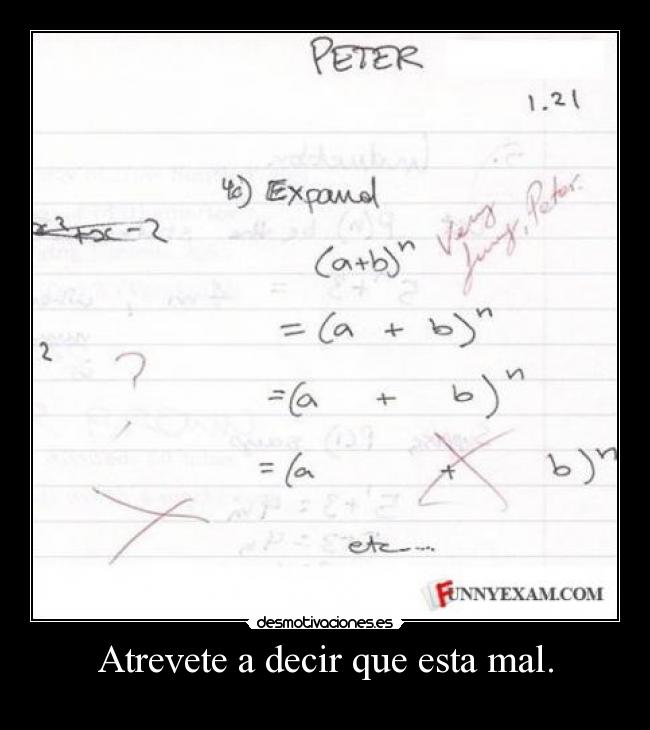 PETER
1.21
4c) Expand
Very funny, Peter.
x² + x - 2
(a+b)ⁿ
= (a + b)ⁿ
2
?
= (a + b)ⁿ
= (a + b)ⁿ
etc....
FUNNYEXAM.COM
desmotivaciones.es
Atrevete a decir que esta mal.